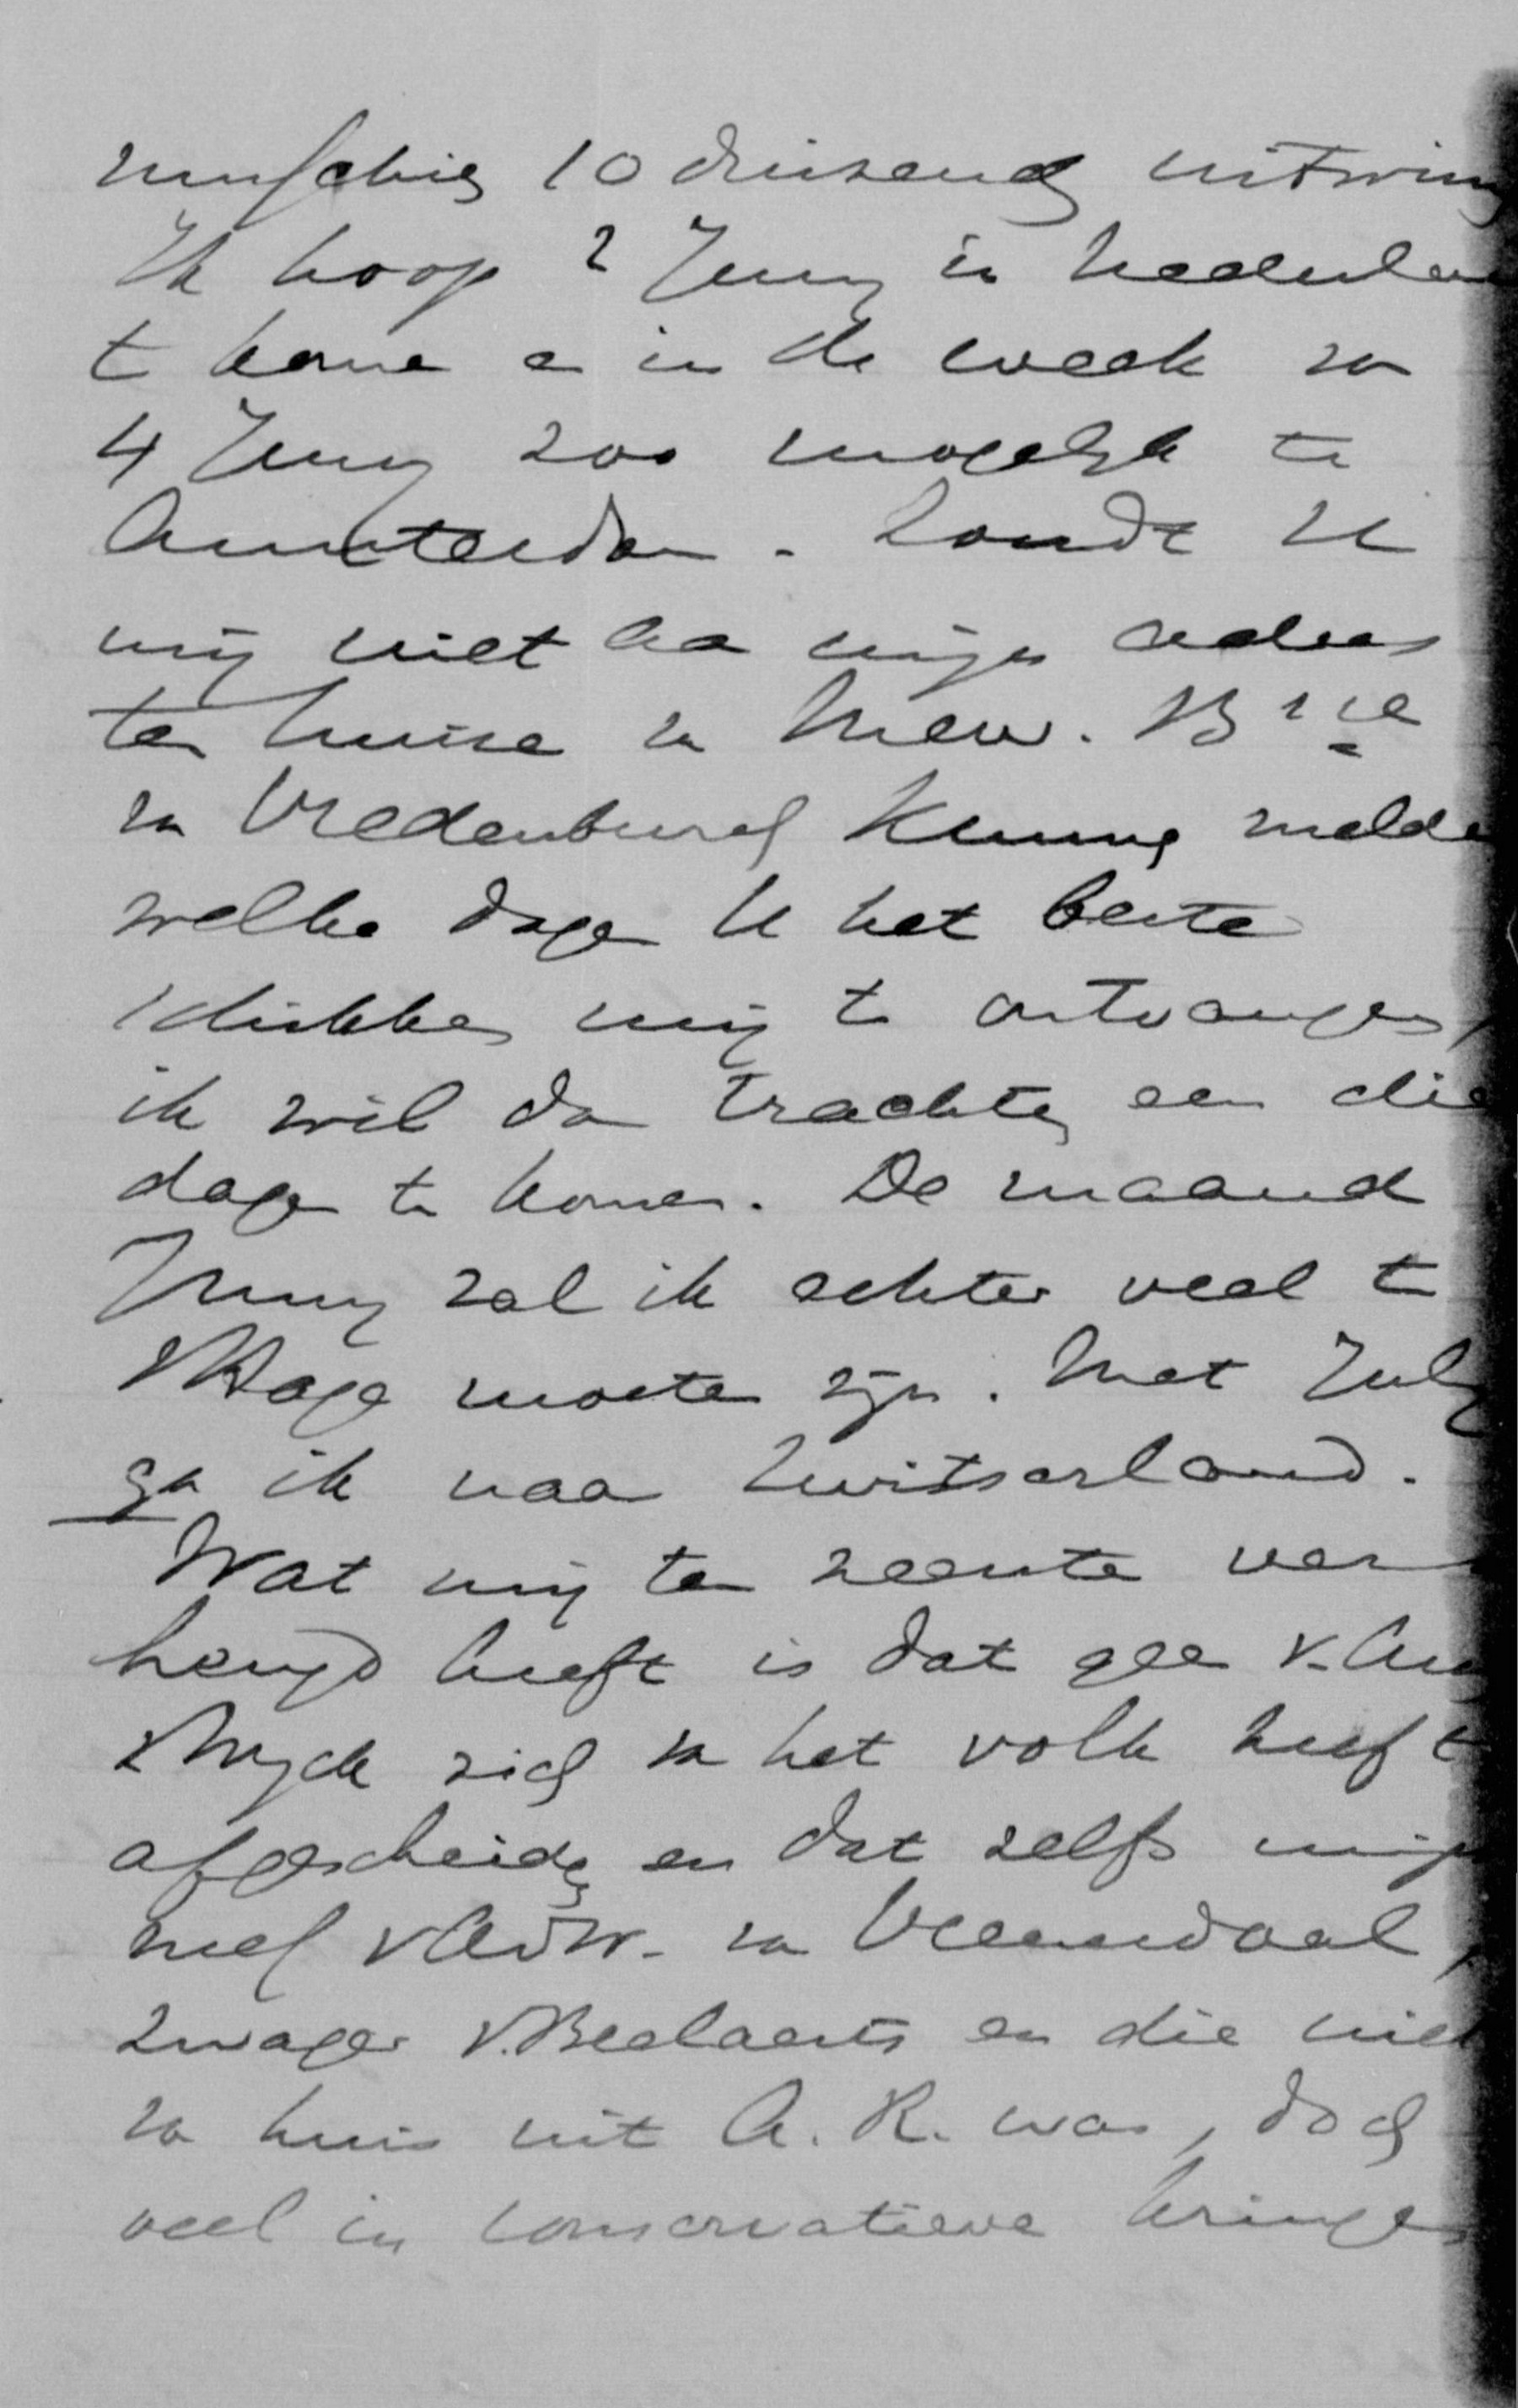 misschien 10 duizend uitwin
Ik hoop 2 Juny in Nederlan
te komen en in de week van
4 Juny zoo mogelijk te
Amsterdam. Zoudt U
mij niet aan mijn adres
ten huize van Mevr. Bsse
van Vredenburch kunnen melden
welke dagen U het beste
schikken mij te ontvangen,
ik wil dan trachten een die
dagen te komen. De maand
Juny zal ik echter veel te
's Hage moeten zijn. Met July
ga ik naar Zwitserland.
Wat mij ten zeerste ver
heugd heeft is dat geen v.
Rhijn zich van het volk heeft
afgescheiden en dat zelfs mijn
neef v. van Veenendaal,
zwager v. Beelaerts en die niet
van huis uit A.R. was, doch
veel in conservatieve kringen